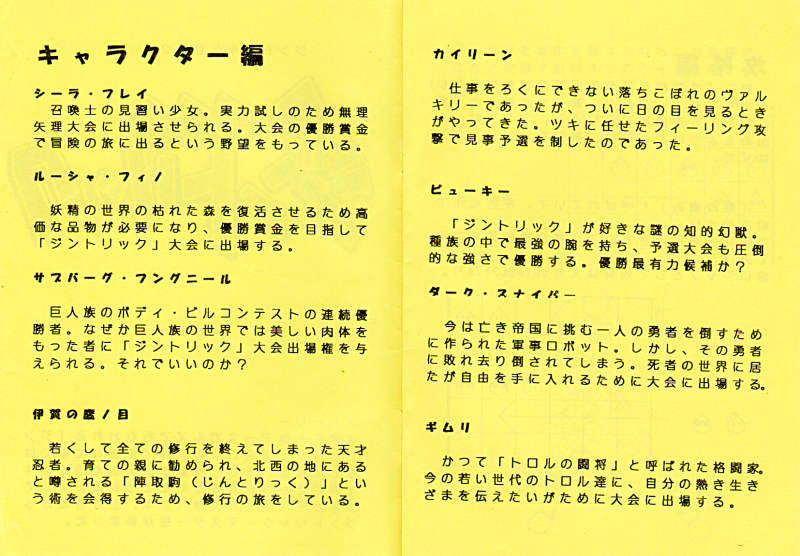 キャラクター編
シーラ・フレイ
召喚士の見習い少女。実力試しのため無理
矢理大会に出場させられる。大会の優勝賞金
で冒険の旅に出るという野望をもっている。
ルーシャ・フィノ
妖精の世界の枯れた森を復活させるため高
価な品物が必要になり、優勝賞金を目指して
「ジントリック」大会に出場する。
サブバーグ・フングニール
巨人族のボディ・ビルコンテストの連続優
勝者。なぜか巨人族の世界では美しい肉体を
もった者に「ジントリック」大会出場権を与
えられる。それでいいのか？
伊賀の鷹ノ目
若くして全ての修行を終えてしまった天才
忍者。育ての親に勧められ、北西の地にある
と噂される「陣取駒（じんとりっく）」とい
う術を会得するため、修行の旅をしている。
カイリーン
仕事をろくにできない落ちこぼれのヴァル
キリーであったが、ついに日の目を見るとき
がやってきた。ツキに任せたフィーリング攻
撃で見事予選を制したのであった。
ピューキー
「ジントリック」が好きな謎の知的幻獣。
種族の中で最強の腕を持ち、予選大会も圧倒
的な強さで優勝する。優勝最有力候補か？
ダーク・スナイパー
今は亡き帝国に挑む一人の勇者を倒すため
に作られた軍事ロボット。しかし、その勇者
に敗れ去り倒されてしまう。死者の世界に居
たが自由を手に入れるために大会に出場する。
ギムリ
かつて「トロルの闘将」と呼ばれた格闘家。
今の若い世代のトロル達に、自分の熱き生き
ざまを伝えたいがために大会に出場する。